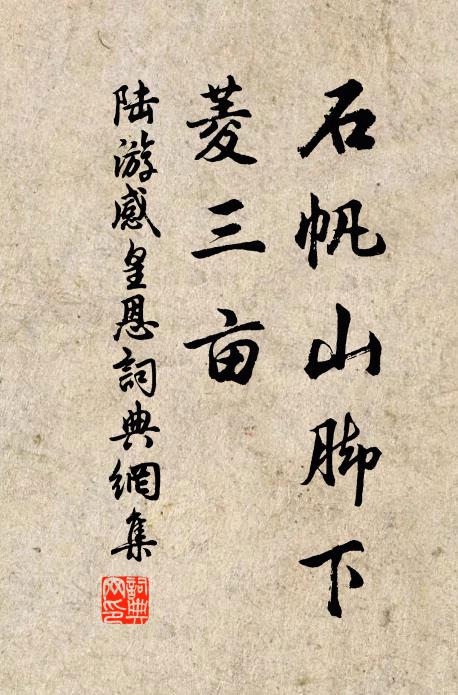 石帆山脚下
菱三亩
陆游感皇恩詞典網集
詞典
网印